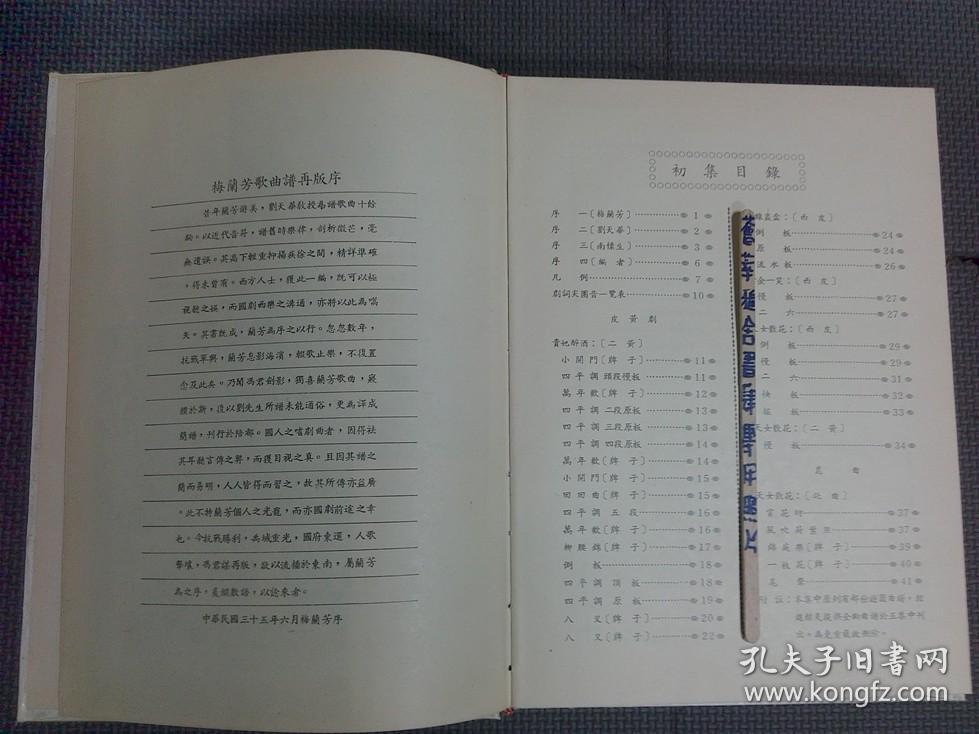 梅蘭芳歌曲譜再版序
昔年蘭芳游美，劉天華教授為譜歌曲十餘
齣。以近代音符，譜舊時樂律，剖析微芒，毫
無遺誤。其高下輕重抑揚疾徐之間，精詳準確
，得未曾有。西方人士，獲此一編，既可以極
視聽之娛，而國劇西樂之溝通，亦將以此為嚆
矢。其書既成，蘭芳為序之以行。忽忽數年，
抗戰軍興，蘭芳息影海濱，輟歌止樂，不復置
念及此矣。乃聞馮君劍影，獨喜蘭芳歌曲，寢
饋於斯，復以劉先生所譜未能通俗，更為譯成
簡譜，刊行於陪都。國人之嗜劇曲者，因得祛
其耳聽言傳之弊，而獲目視之真。且因其譜之
簡而易明，人人皆得而習之，故其所傳亦益廣
。此不特蘭芳個人之光寵，而亦國劇前途之幸
也。今抗戰勝利，禹城重光，國府東還，人歌
擊壤，馮君謀再版，欲以流播於東南，屬蘭芳
為之序，爰綴數語，以諗來者。
中華民國三十五年六月梅蘭芳序
初集目錄
序 一〔梅蘭芳〕 1
序 二〔劉天華〕 2
序 三〔南懷生〕 3
序 四〔編者〕 6
凡 例 7
劇詞尖團音一覽表 10
皮黃劇
貴妃醉酒：〔二黃〕
小開門〔牌子〕 11
四平調 頭段慢板 11
萬年歡〔牌子〕 12
四平調 二段原板 13
四平調 三段原板 13
四平調 四段原板 14
萬年歡〔牌子〕 14
小開門〔牌子〕 15
回回曲〔牌子〕 15
四平調 五段 16
萬年歡〔牌子〕 16
柳腰錦〔牌子〕 17
倒板 18
四平調 頂板 18
四平調 原板 19
八 叉〔牌子〕 20
八 叉〔牌子〕 22
盒：〔西皮〕
倒板 24
原板 24
流水板 26
金一笑：〔西皮〕
慢板 27
二六 27
天女散花：〔西皮〕
倒板 29
慢板 29
二六 31
快板 32
板 33
天女散花：〔二黃〕
慢板 34
崑曲
天女散花：〔崑曲〕
賞花時 37
風吹荷葉煞 37
錦庭樂〔牌子〕 39
一枝花〔牌子〕 40
41
附註：本集中原列有
薈萃雅舍書肆專用照片
孔夫子旧書网
www.kongfz.com